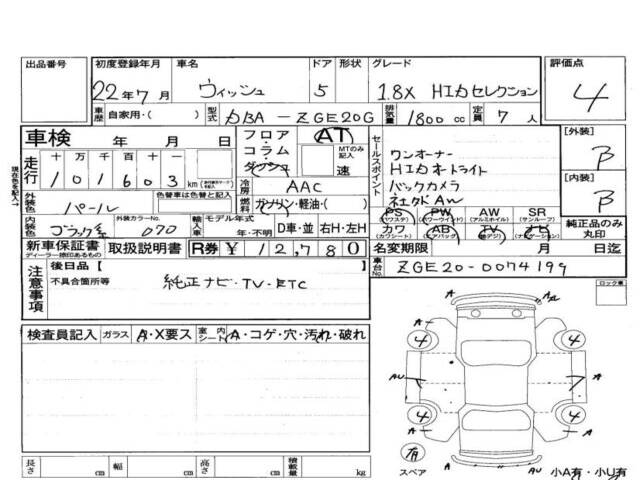 出品番号 初度登録年月 車名 ドア 形状 グレード 評価点
22年7月 ヴィッシュ 5 1.8X HIDセレクション 4
車歴 自家用・( ) 型式 DBA-ZGE20G 排気量 1800cc 定員 7人
車検 年 月 日
フロア・コラム ダッシュ AT MTのみ記入 速
セールスポイント
ワンオーナー
HIDオートライト
バックカメラ
ネオタAW
[外装] B
[内装] B
現在色を記入→
走行 十 万 千 百 十 一
101603 km
冷房 AAC
燃料 ガソリン・軽油・( )
外装色 パール 色替車は色替と記入
内装色 外装カラーNo. 070
輸入車 モデル年式 年・不明 D車・並 右H・左H
PS (パワステ) PW (パワーウインド) AW (アルミホイル) SR (サンルーフ)
カワ (カワシート) AB (エアバッグ) TV ナビ (ナビゲーション)
純正品のみ丸印
新車保証書 ディーラー捺印あるもの 取扱説明書 R券 ¥12,780
名変期限 月 日迄
車台No. ZGE20-0074199
注意事項 後日品[ ]
不具合箇所等
純正ナビ・TV・ETC
ロック車
検査員記入 ガラス A・X要ス 室内シート A・コゲ・穴・汚れ・破れ
A A U
A A
4 4
AU A
4 4
A A
有
スペア
A AU
小A有・小U有
長さ cm 幅 cm 高さ cm 積載量 kg